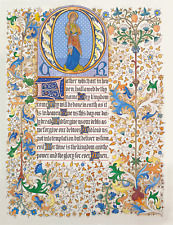 OUR
Father which art in hea
ven, hallowed be thy
name. Thy kingdom
come. Thy will be done in earth as it
is in heaven. Give us this day our daily
bread. And forgive us our debts as
we forgive our debtors. And lead us
not into temptation but deliver us
from evil. For thine is the kingdom and the
power and the glory for ever. Amen.